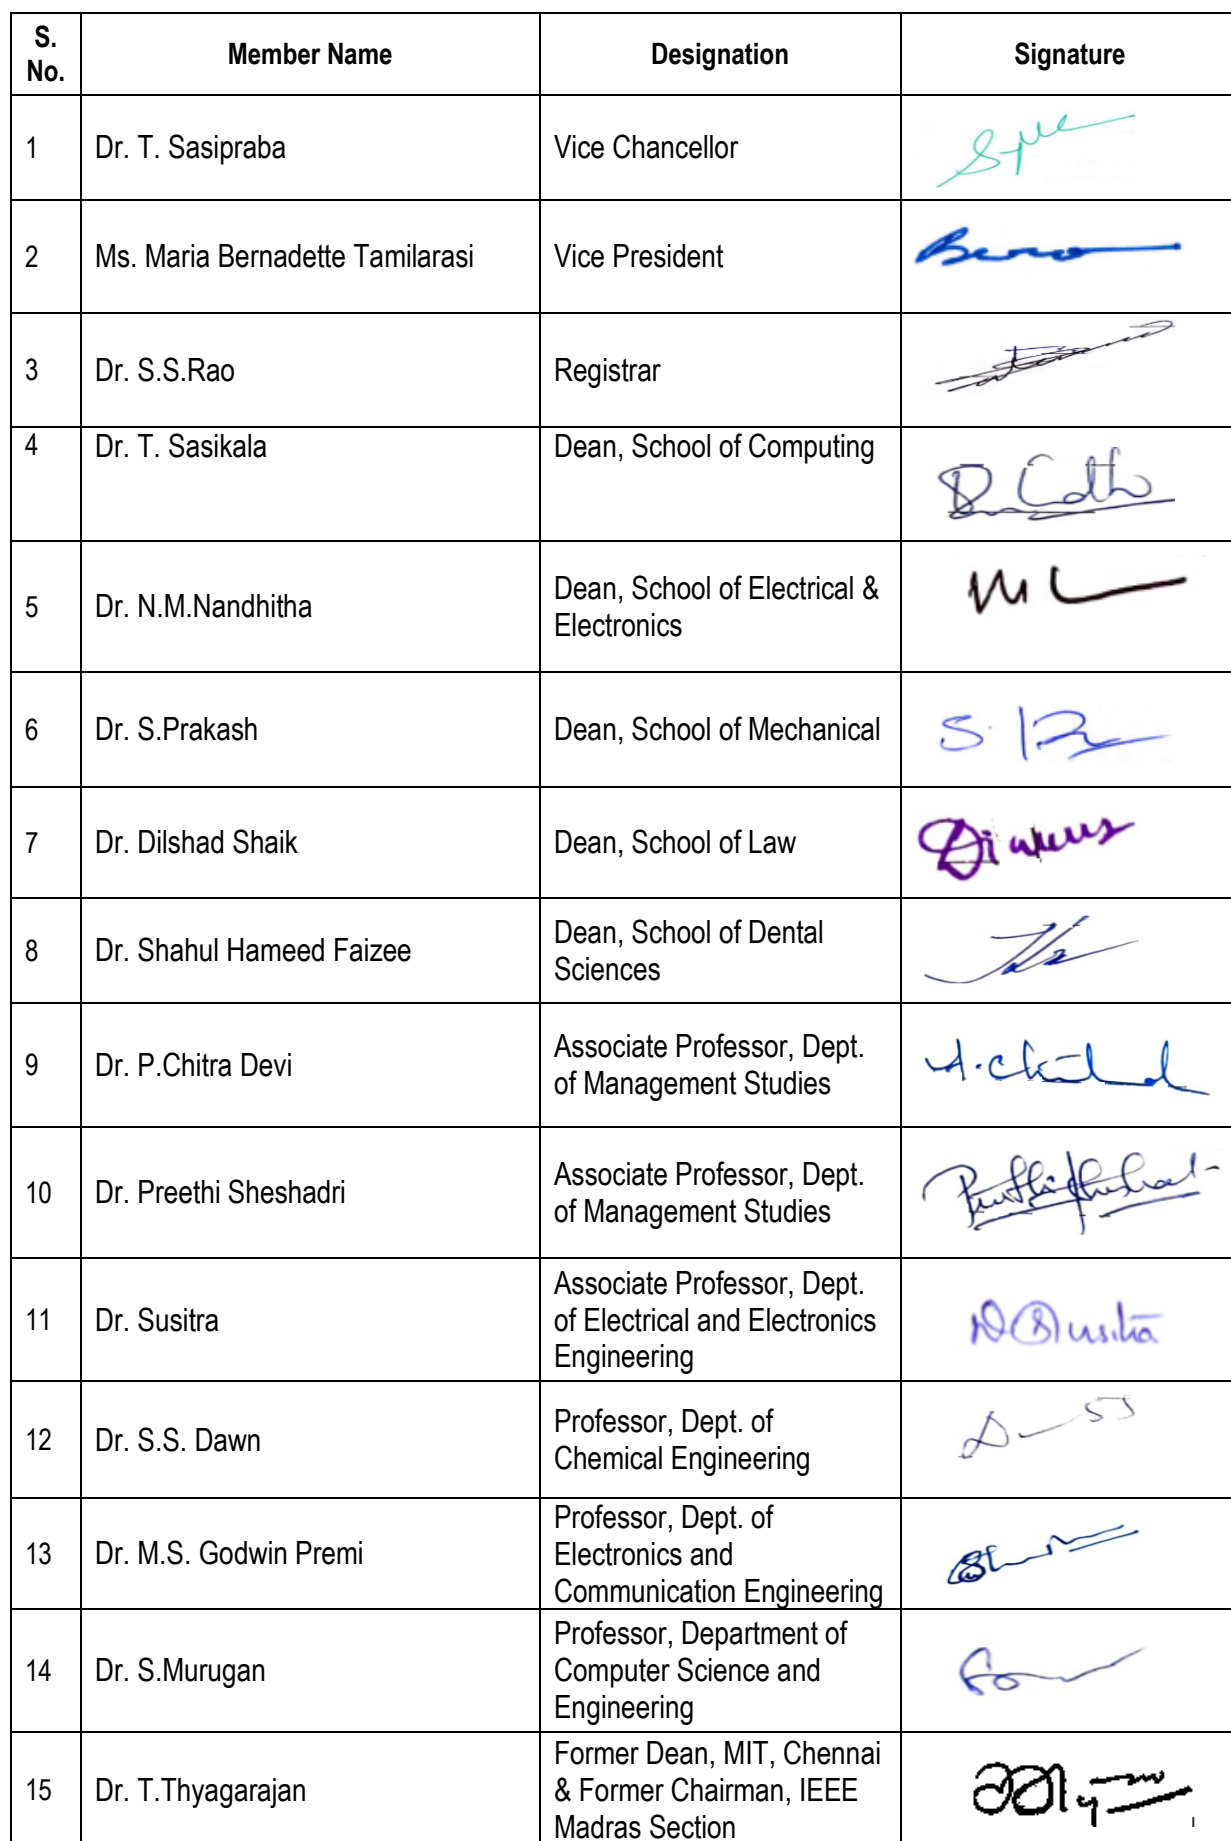 S. No. Member Name Designation Signature
1 Dr. T. Sasipraba Vice Chancellor
2 Ms. Maria Bernadette Tamilarasi Vice President
3 Dr. S.S.Rao Registrar
4 Dr. T. Sasikala Dean, School of Computing
5 Dr. N.M.Nandhitha Dean, School of Electrical &
Electronics
6 Dr. S.Prakash Dean, School of Mechanical
7 Dr. Dilshad Shaik Dean, School of Law
8 Dr. Shahul Hameed Faizee Dean, School of Dental
Sciences
9 Dr. P.Chitra Devi Associate Professor, Dept.
of Management Studies
10 Dr. Preethi Sheshadri Associate Professor, Dept.
of Management Studies
11 Dr. Susitra Associate Professor, Dept.
of Electrical and Electronics
Engineering
12 Dr. S.S. Dawn Professor, Dept. of
Chemical Engineering
13 Dr. M.S. Godwin Premi Professor, Dept. of
Electronics and
Communication Engineering
14 Dr. S.Murugan Professor, Department of
Computer Science and
Engineering
15 Dr. T.Thyagarajan Former Dean, MIT, Chennai
& Former Chairman, IEEE
Madras Section